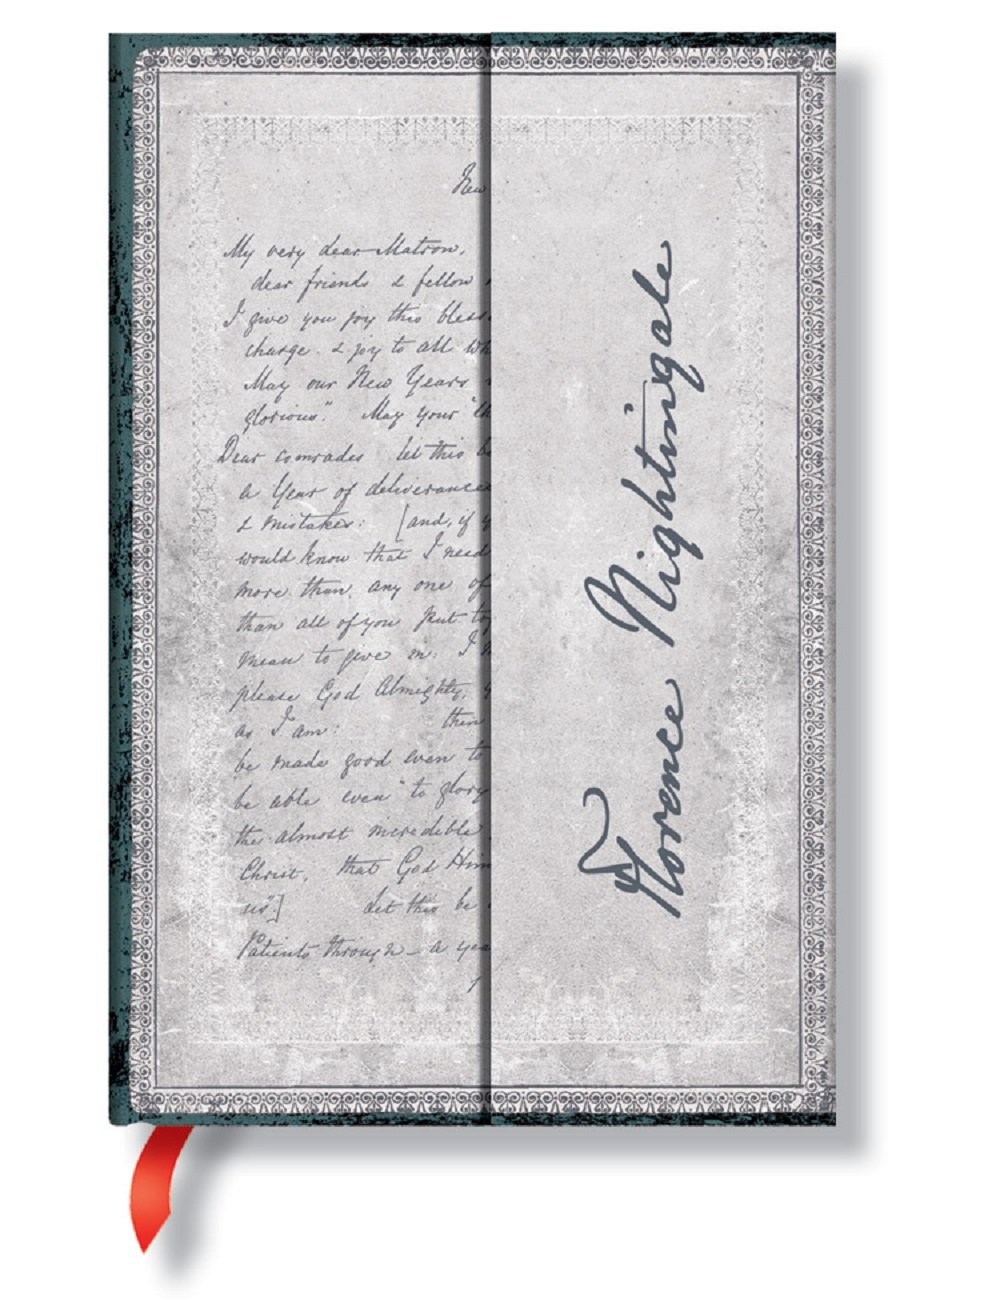 New
My very dear Matron,
dear friends & fellow
I give you joy this bless
charge. & joy to all wh
May our New Years
glorious." May your "th
Dear comrades let this b
a Year of deliverance
& mistakes: [and, if y
would know that I need
more than any one of
than all of you put tog
mean to give in: I
please God Almighty,
as I am: then
be made good even to
be able even "to glory
the almost incredible
Christ, that God Him
us".] Let this be
Patients through – a yea
Florence Nightingale